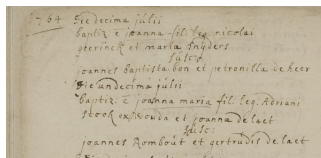 1764 Die decima julii
baptiz e joanna fil. leg. nicolai
et maria Snyders
Susc:
joannes baptista bon et petronilla de heer
Die undecima julii
baptiz. e joanna maria fil. leg. Adriani
et joanna de laet
Susc:
joannes Rombout et gertrudis de laet